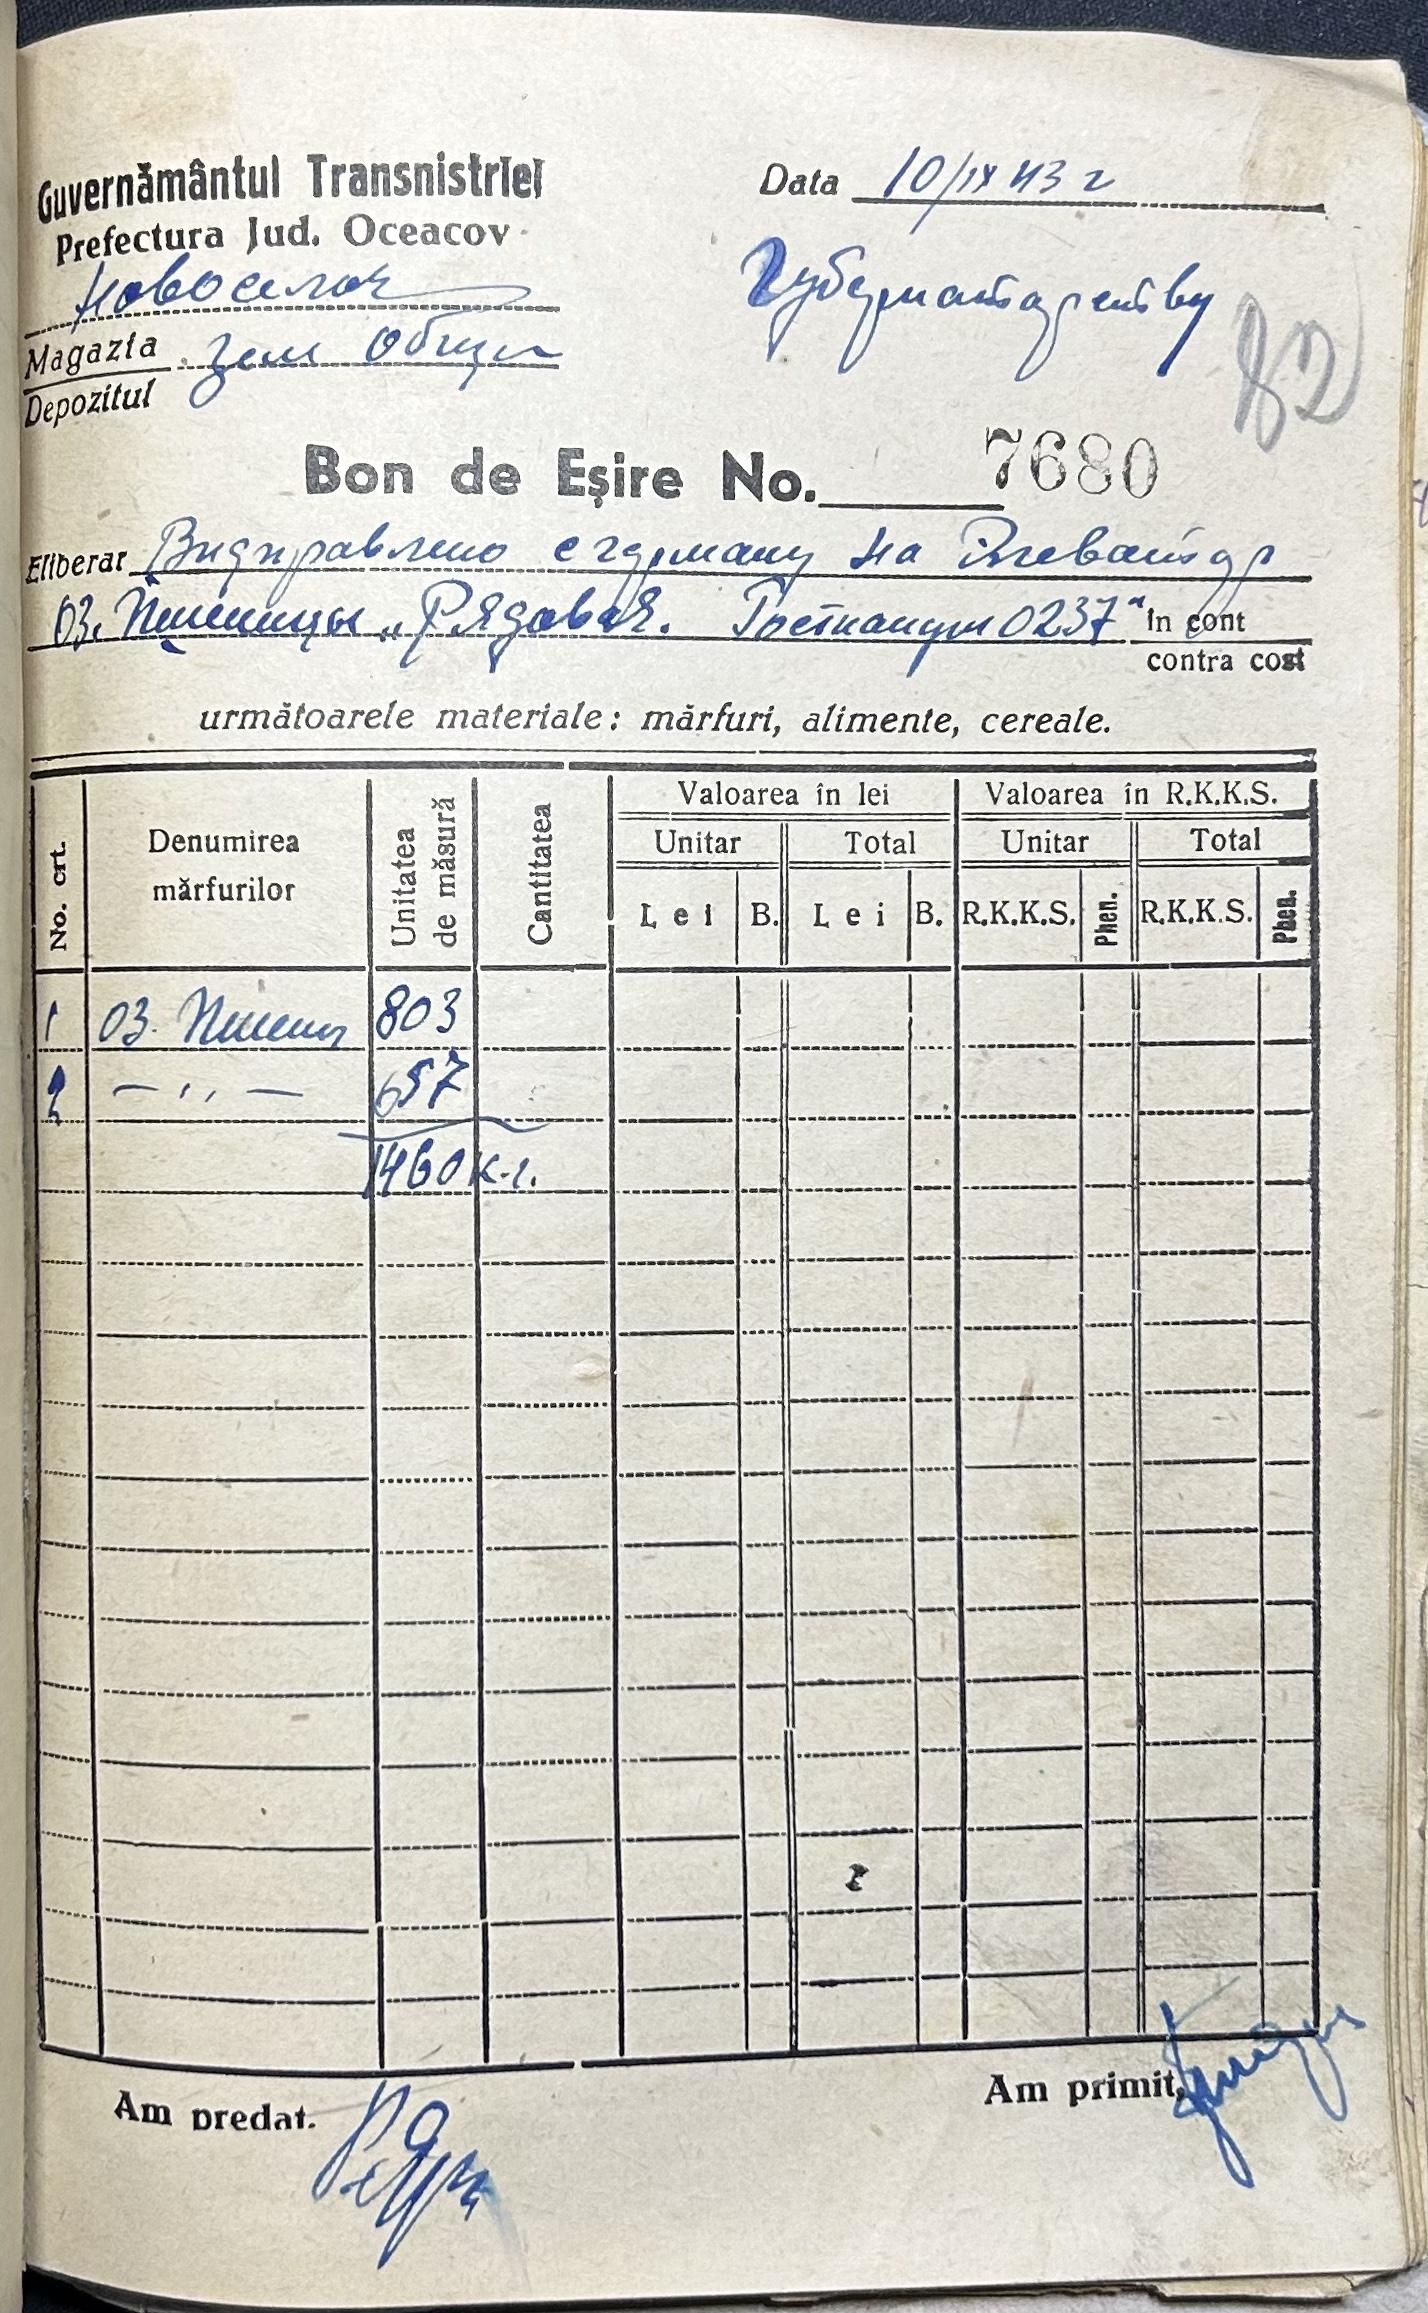 Guvernământul Transnistriei
Prefectura Jud. Oceacov
Новоселок
Magazia Зем Общин
Depozitul
Data 10/IX 43 г
Губернаторству
82
Bon de Eşire No. 7680
Eliberar на Элеватор
03. Пшеницы „Рядовая. 0237" în cont
contra cost
următoarele materiale: mărfuri, alimente, cereale.
No. crt. Denumirea mărfurilor Unitatea de măsură Cantitatea Valoarea în lei Valoarea în R.K.K.S.
Unitar Total Unitar Total
Lei B. Lei B. R.K.K.S. Phen. R.K.K.S. Phen.
1 03. Пшениц 803
2 — ,, — 657
1460 к-г.
Am predat.
Am primit,